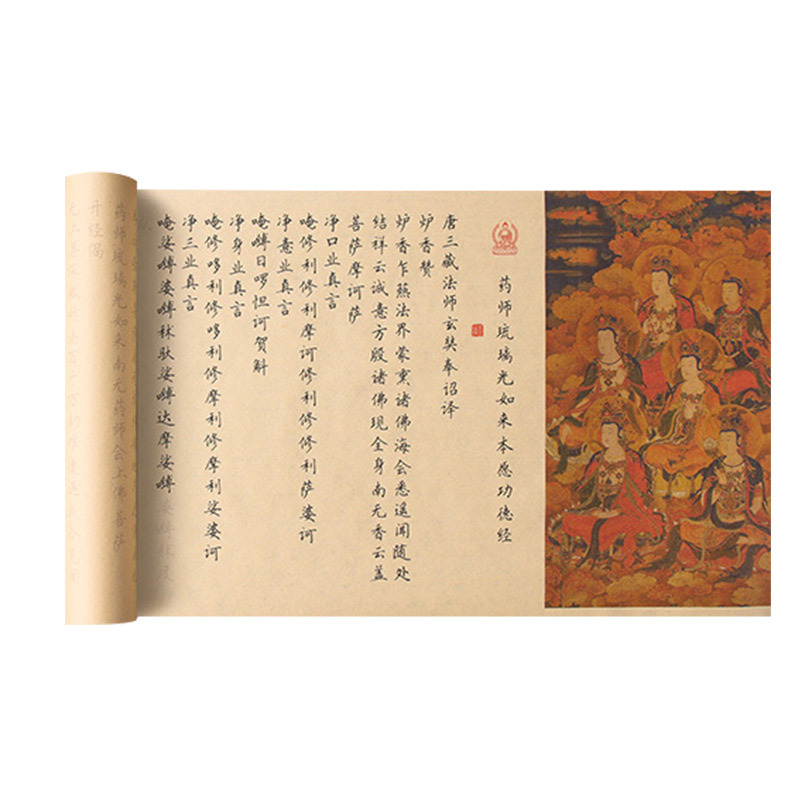 药师琉璃光如来本愿功德经
唐三藏法师玄奘奉诏译
炉香赞
炉香乍爇法界蒙熏诸佛海会悉遥闻随处
结祥云诚意方殷诸佛现全身南无香云盖
菩萨摩诃萨
净口业真言
唵修利修利摩诃修利修修利萨婆诃
净意业真言
唵嚩日啰怛诃贺斛
净身业真言
唵修哆利修哆利修摩利修摩利娑婆诃
净三业真言
唵娑嚩婆嚩秫驮娑嚩达摩娑嚩
开经偈
药师琉璃光如来南无药师会上佛菩萨